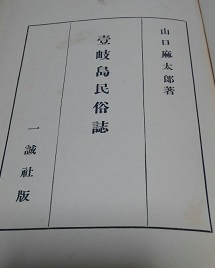 山口麻太郎著
壹岐島民俗誌
一誠社版